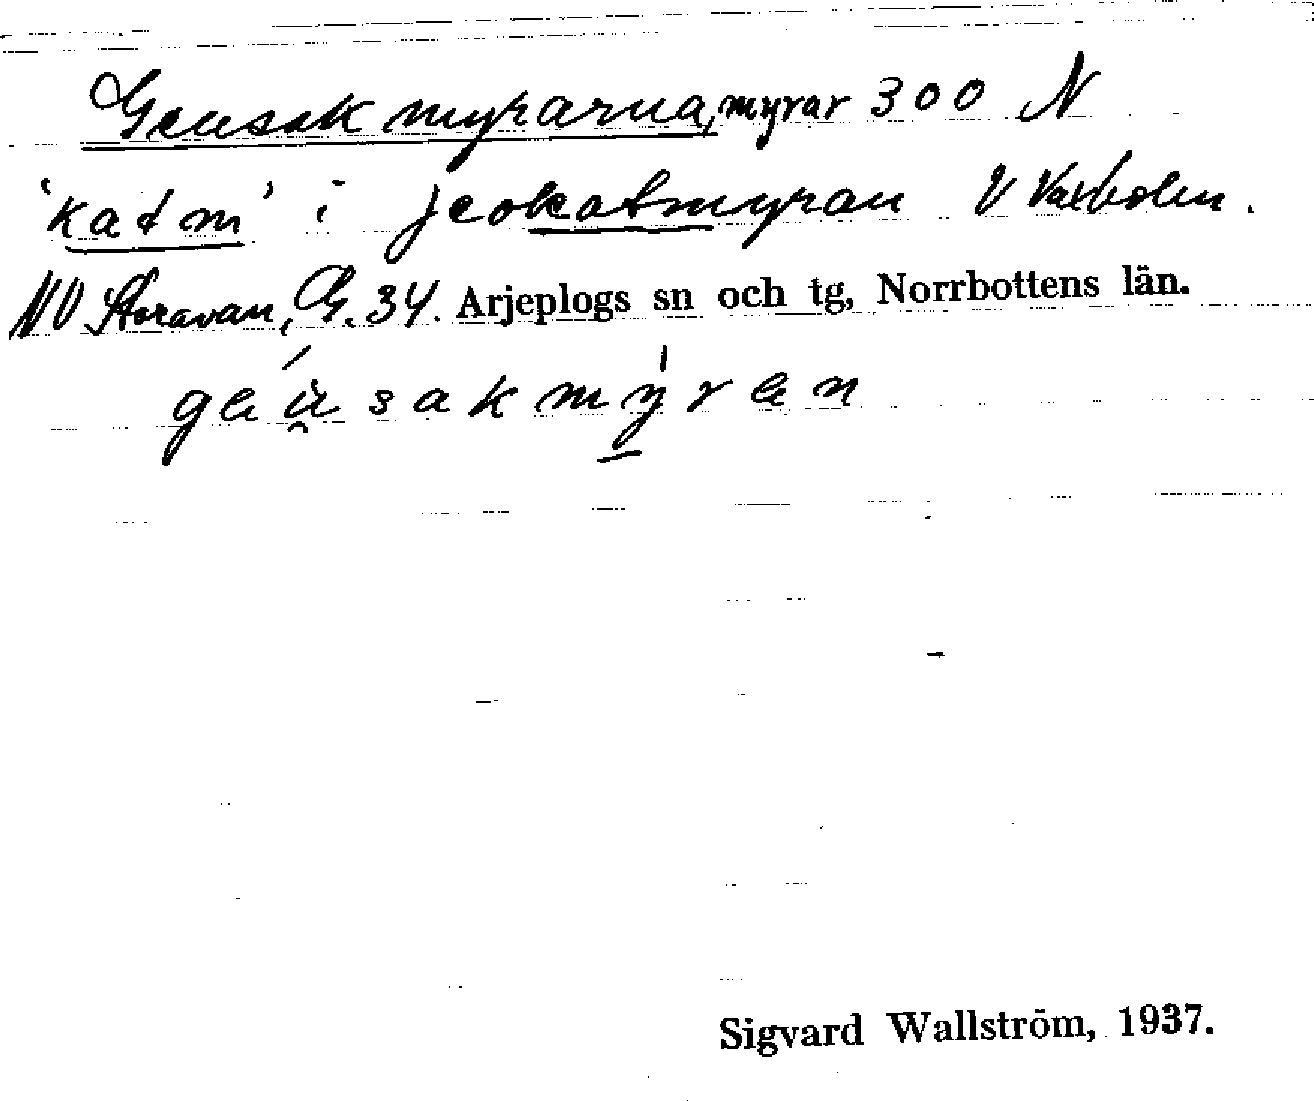 Geusakmyrarna, myrar 300 N
'katm' i jeokatmyran V Vaxholm.
NV Storavan, G. 34. Arjeplogs sn och tg, Norrbottens län.
geusakmyren
Sigvard Wallström, 1937.